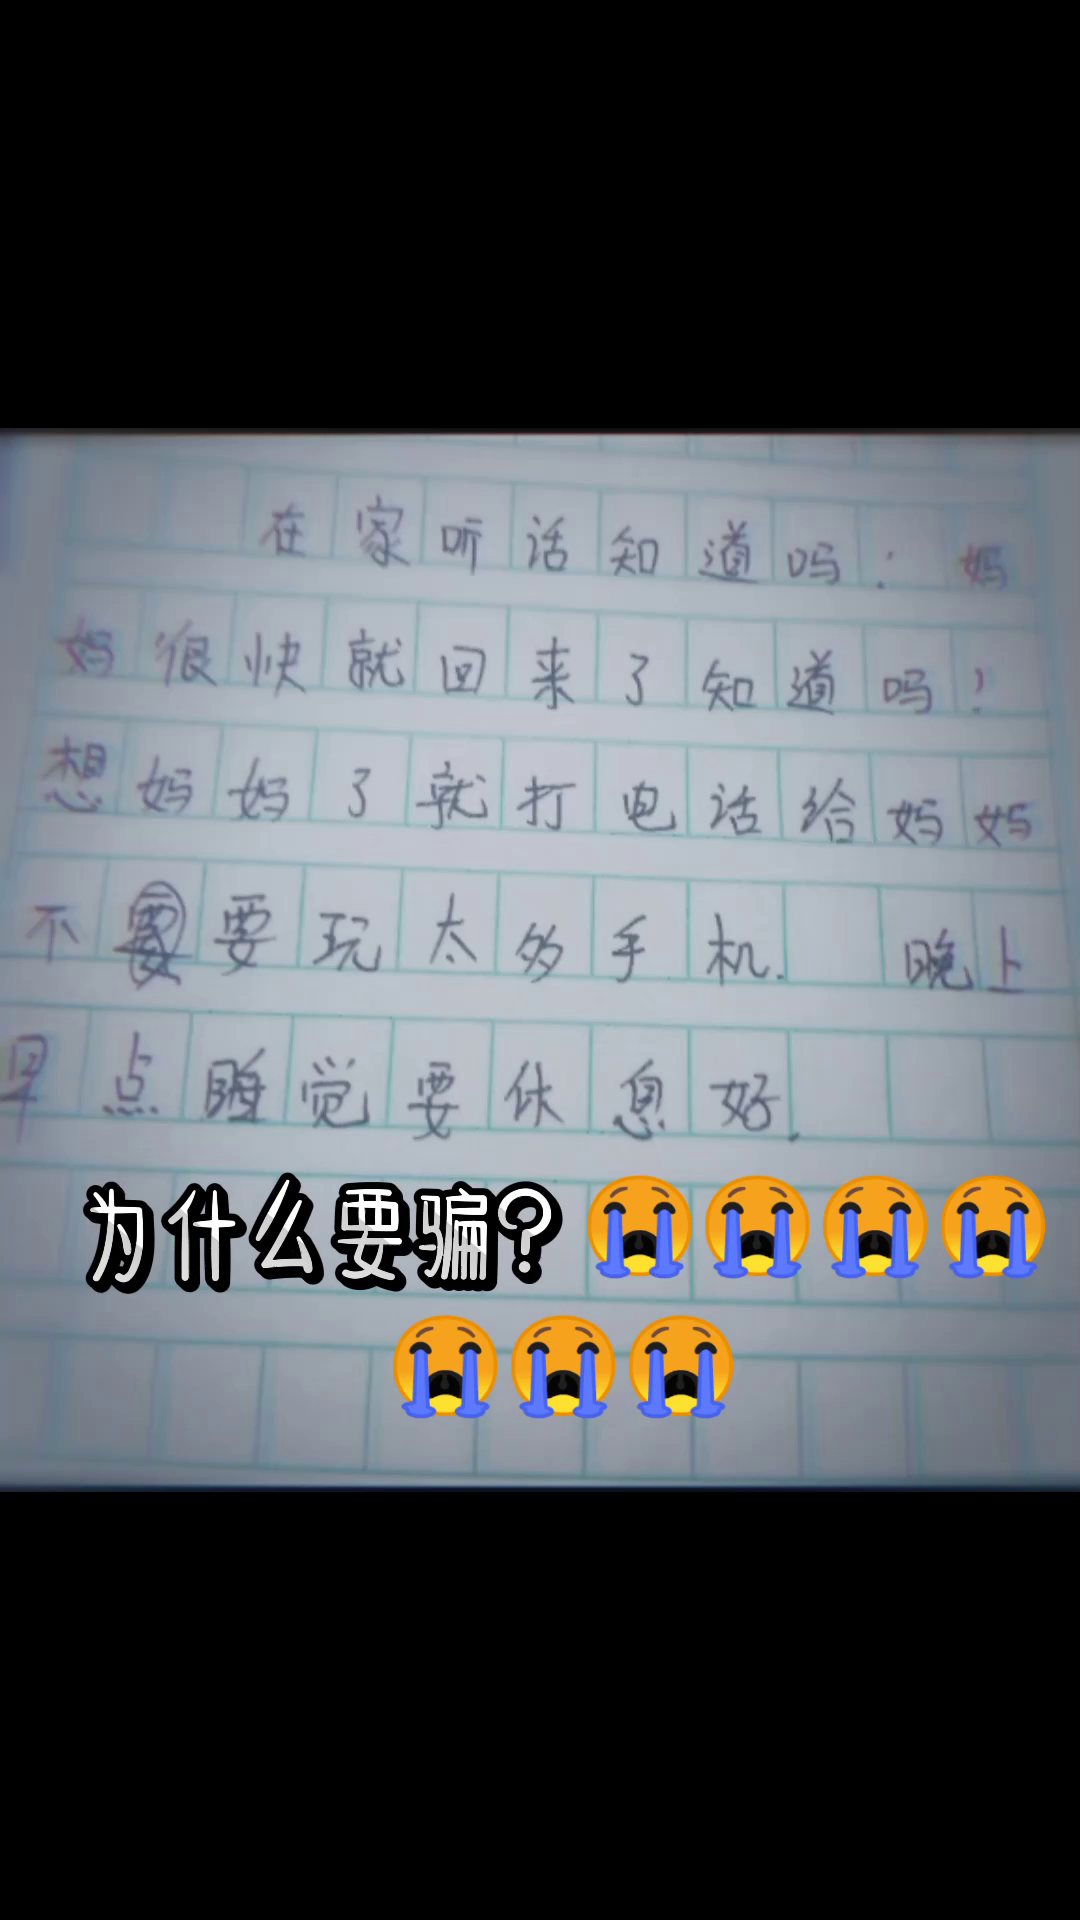 在家听话知道吗！妈
妈很快就回来了知道吗！
想妈妈了就打电话给妈妈
不要玩太多手机. 晚上
早点睡觉要休息好.
为什么要骗?😭😭😭😭
😭😭😭